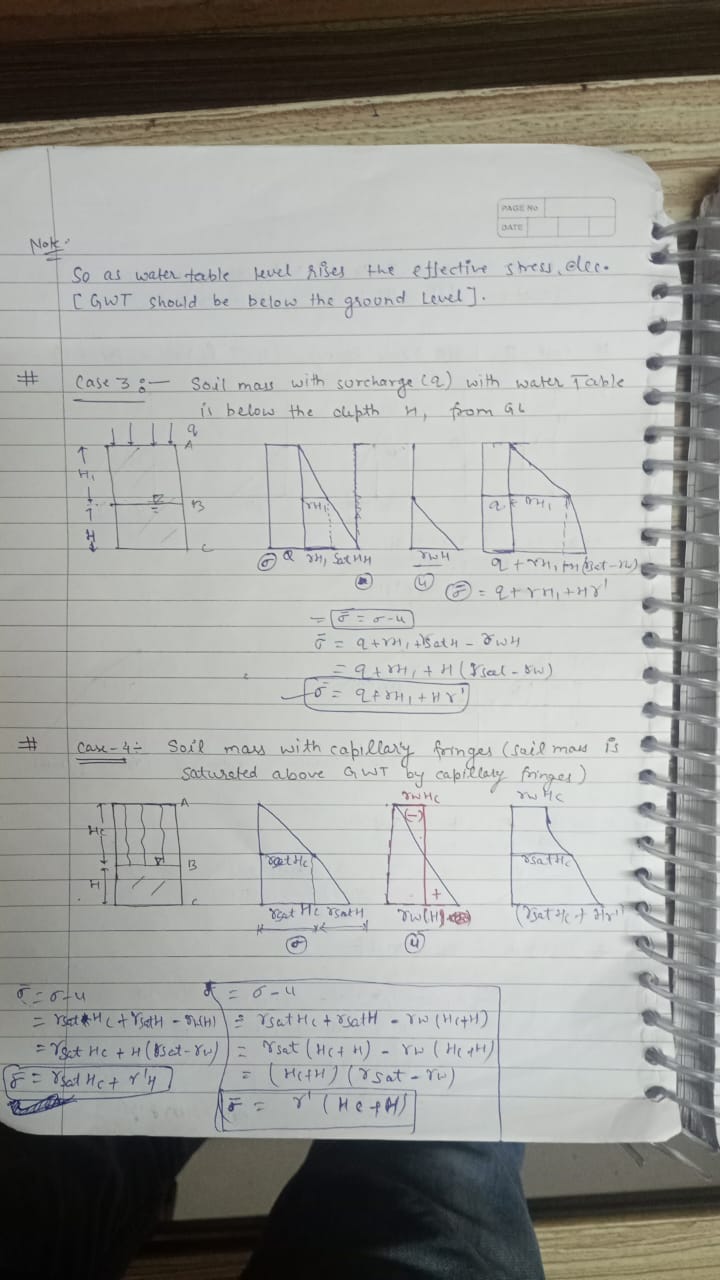 PAGE NO
DATE
Note:
So as water table level rises the effective stress dec.
[GWT should be below the ground level].
# Case 3 :— Soil mass with surcharge (q) with water Table
is below the depth H₁ from GL
q
A
H₁
B
H
C
γH₁
σ Q γH₁ γsat H
γwH
u
q γH₁
q + γH₁ + H(γsat - γw)
σ̄ = q + γH₁ + Hγ'
= σ̄ = σ-u
σ̄ = q + γH₁ + γsatH - γwH
= q + γH₁ + H (γsat - γw)
σ̄ = q + γH₁ + Hγ'
# Case-4÷ Soil mass with capillary fringes (soil mass is
saturated above GWT by capillary fringes)
A
Hc
B
H
C
γsatHc
γsat Hc γsatH
σ
γwHc
(-)
+
γw(H)
u
γwHc
γsatHc
(γsat Hc + Hγ'
σ̄ = σ-u
= γsatHc + γsatH - γw(H)
= γsat Hc + H(γsat-γw)
σ̄ = γsatHc + γ'H
σ̄ = σ-u
= γsatHc + γsatH - γw (Hc+H)
= γsat (Hc+H) - γw (Hc+H)
= (Hc+H) (γsat - γw)
σ̄ = γ' (Hc+H)